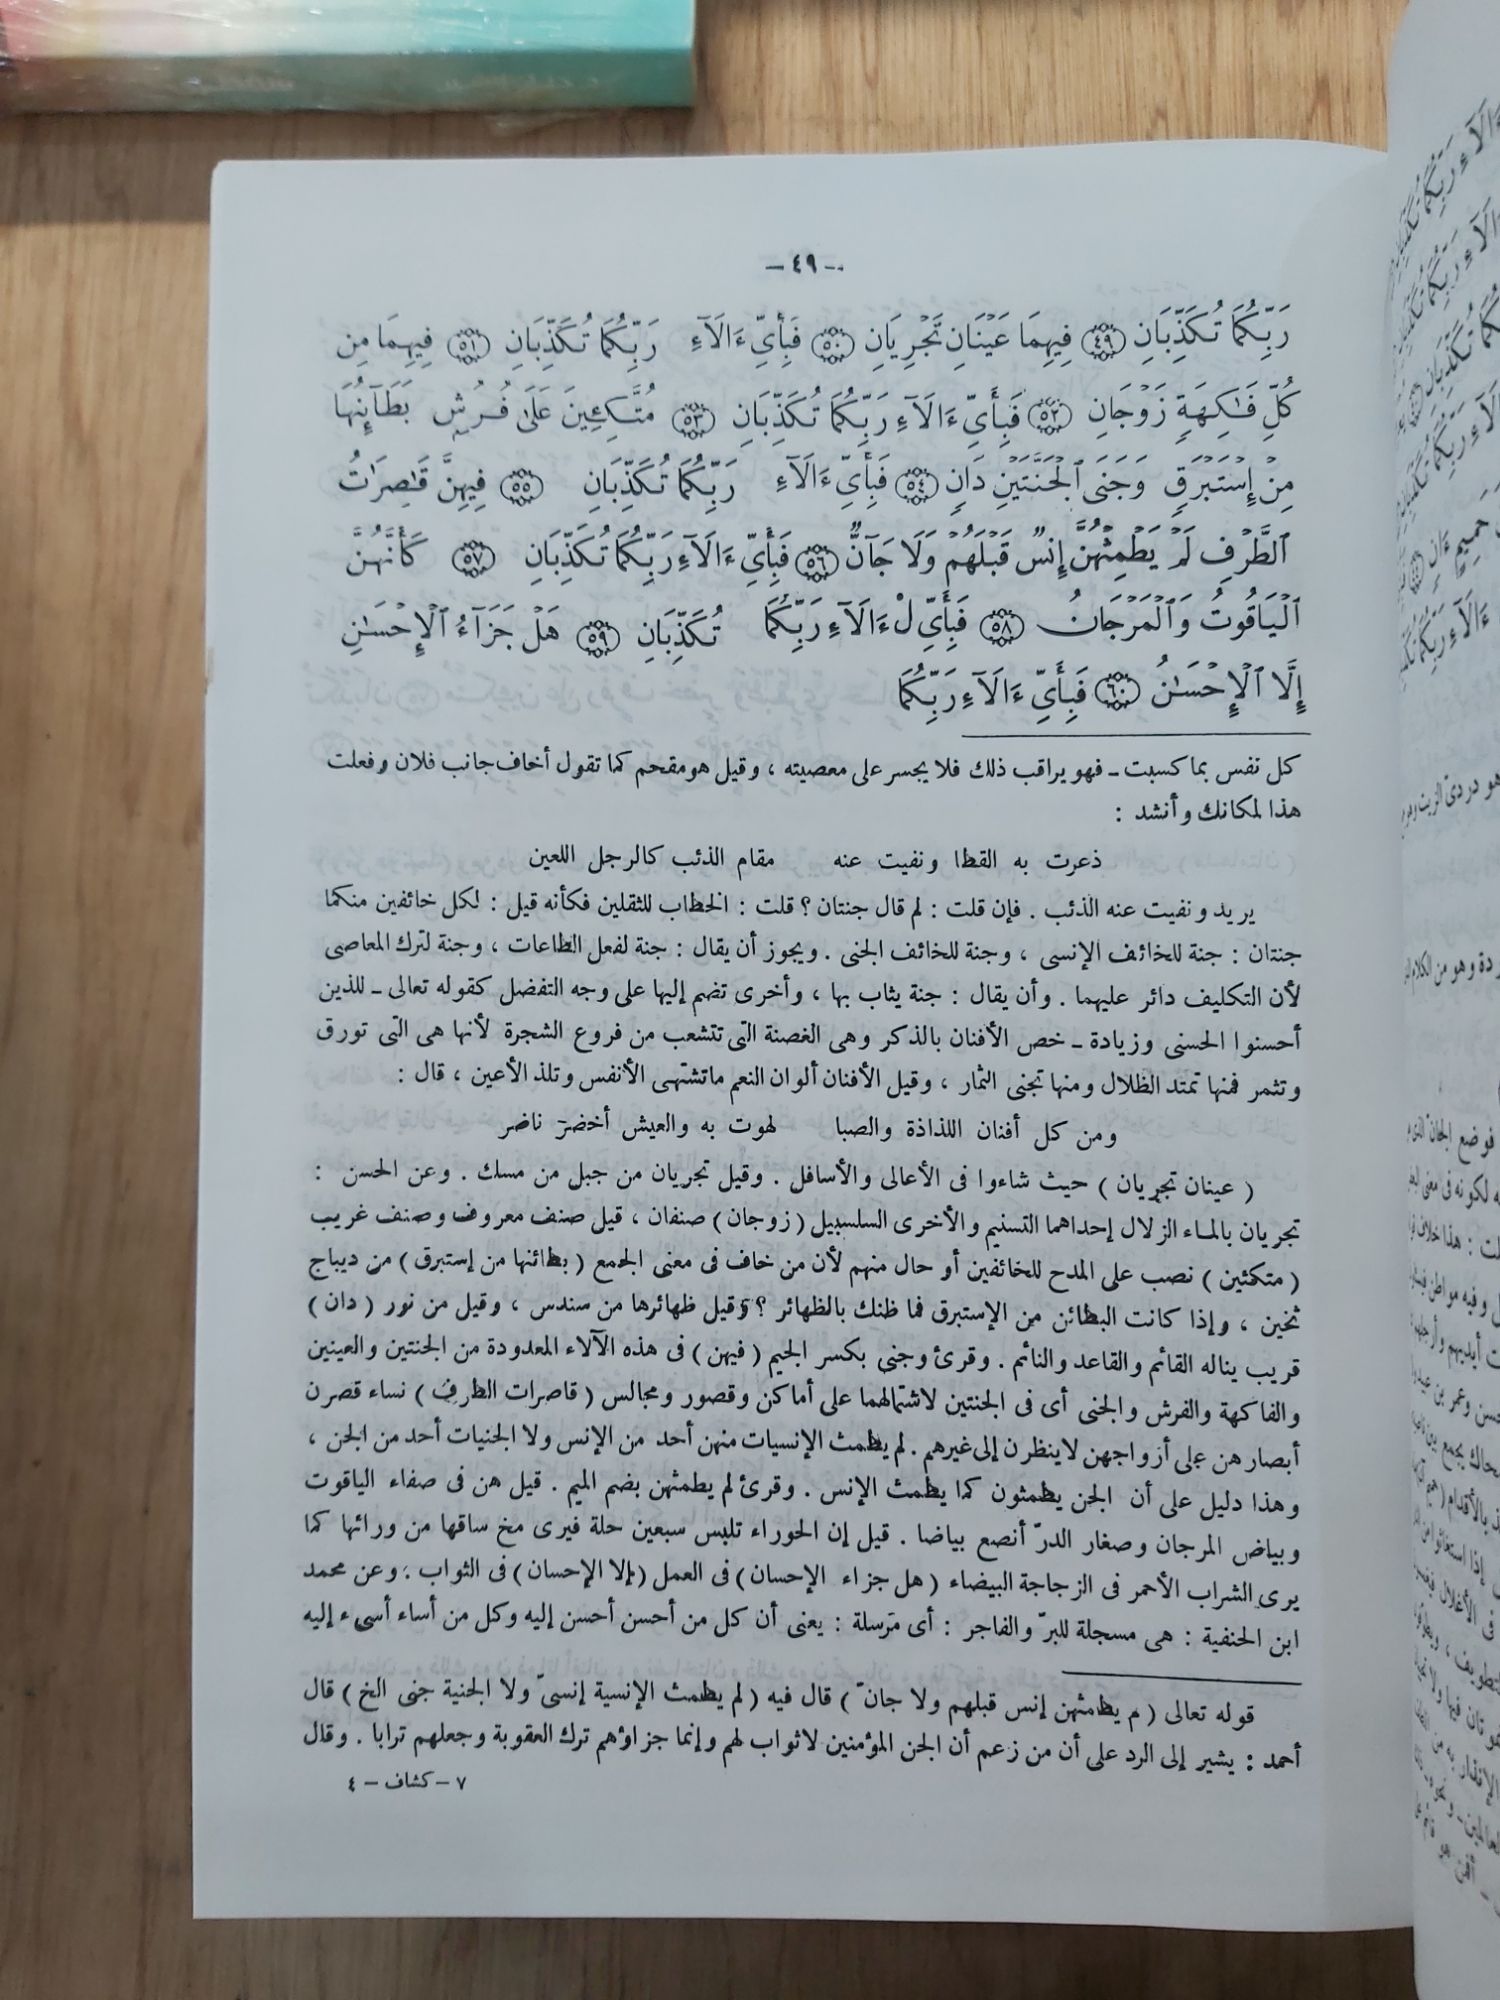 - ٤٩ -
رَبِّكُمَا تُكَذِّبَانِ ٤٩ فِيهِمَا عَيْنَانِ تَجْرِيَانِ ٥٠ فَبِأَيِّ ءَالَآءِ رَبِّكُمَا تُكَذِّبَانِ ٥١ فِيهِمَا مِن
كُلِّ فَٰكِهَةٍ زَوْجَانِ ٥٢ فَبِأَيِّ ءَالَآءِ رَبِّكُمَا تُكَذِّبَانِ ٥٣ مُتَّكِـِٔينَ عَلَىٰ فُرُشٍ بَطَآئِنُهَا
مِنْ إِسْتَبْرَقٍ وَجَنَى ٱلْجَنَّتَيْنِ دَانٍ ٥٤ فَبِأَيِّ ءَالَآءِ رَبِّكُمَا تُكَذِّبَانِ ٥٥ فِيهِنَّ قَٰصِرَٰتُ
ٱلطَّرْفِ لَمْ يَطْمِثْهُنَّ إِنسٌ قَبْلَهُمْ وَلَا جَآنٌّ ٥٦ فَبِأَيِّ ءَالَآءِ رَبِّكُمَا تُكَذِّبَانِ ٥٧ كَأَنَّهُنَّ
ٱلْيَاقُوتُ وَٱلْمَرْجَانُ ٥٨ فَبِأَيِّ لْ ءَالَآءِ رَبِّكُمَا تُكَذِّبَانِ ٥٩ هَلْ جَزَآءُ ٱلْإِحْسَٰنِ
إِلَّا ٱلْإِحْسَٰنُ ٦٠ فَبِأَيِّ ءَالَآءِ رَبِّكُمَا
كل نفس بما كسبت ـ فهو يراقب ذلك فلا يجسر على معصيته ، وقيل هو مقحم كما تقول أخاف جانب فلان وفعلت
هذا لمكانك وأنشد :
ذعرت به القطا ونفيت عنه مقام الذئب كالرجل اللعين
يريد ونفيت عنه الذئب . فإن قلت : لم قال جنتان ؟ قلت : الخطاب للثقلين فكأنه قيل : لكل خائفين منكما
جنتان : جنة للخائف الإنسى ، وجنة للخائف الجنى . ويجوز أن يقال : جنة لفعل الطاعات ، وجنة لترك المعاصى
لأن التكليف دائر عليهما . وأن يقال : جنة يثاب بها ، وأخرى تضم إليها على وجه التفضل كقوله تعالى ـ للذين
أحسنوا الحسنى وزيادة ـ خص الأفنان بالذكر وهى الغصنة التى تتشعب من فروع الشجرة لأنها هى التى تورق
وتثمر فمنها تمتد الظلال ومنها تجنى الثمار ، وقيل الأفنان ألوان النعم ماتشتهى الأنفس وتلذ الأعين ، قال :
ومن كل أفنان اللذاذة والصبا لهوت به والعيش أخضر ناضر
( عينان تجريان ) حيث شاءوا فى الأعالى والأسافل . وقيل تجريان من جبل من مسك . وعن الحسن :
تجريان بالماء الزلال إحداهما التسنيم والأخرى السلسبيل ( زوجان ) صنفان ، قيل صنف معروف وصنف غريب
( متكئين ) نصب على المدح للخائفين أو حال منهم لأن من خاف فى معنى الجمع ( بطائنها من إستبرق ) من ديباج
ثخين ، وإذا كانت البطائن من الإستبرق فما ظنك بالظهائر ؟ وقيل ظهائرها من سندس ، وقيل من نور ( دان )
قريب يناله القائم والقاعد والنائم . وقرئ وجنى بكسر الجيم ( فيهن ) فى هذه الآلاء المعدودة من الجنتين والعينين
والفاكهة والفرش والجنى أى فى الجنتين لاشتمالهما على أماكن وقصور ومجالس ( قاصرات الطرف ) نساء قصرن
أبصارهن على أزواجهن لاينظرن إلى غيرهم . لم يطمث الإنسيات منهن أحد من الإنس ولا الجنيات أحد من الجن ،
وهذا دليل على أن الجن يطمثون كما يطمث الإنس . وقرئ لم يطمثهن بضم الميم . قيل هن فى صفاء الياقوت
وبياض المرجان وصغار الدرّ أنصع بياضا . قيل إن الحوراء تلبس سبعين حلة فيرى مخ ساقها من ورائها كما
يرى الشراب الأحمر فى الزجاجة البيضاء ( هل جزاء الإحسان ) فى العمل ( إلا الإحسان ) فى الثواب ، وعن محمد
ابن الحنفية : هى مسجلة للبرّ والفاجر : أى مرسلة : يعنى أن كل من أحسن أحسن إليه وكل من أساء أسىء إليه
قوله تعالى ( م يطمثهن إنس قبلهم ولا جانّ ) قال فيه ( لم يطمث الإنسية إنسىّ ولا الجنية جنى الخ ) قال
أحمد : يشير إلى الرد على أن من زعم أن الجن المؤمنين لاثواب لهم وإنما جزاؤهم ترك العقوبة وجعلهم ترابا . وقال
٧ - كشاف - ٤